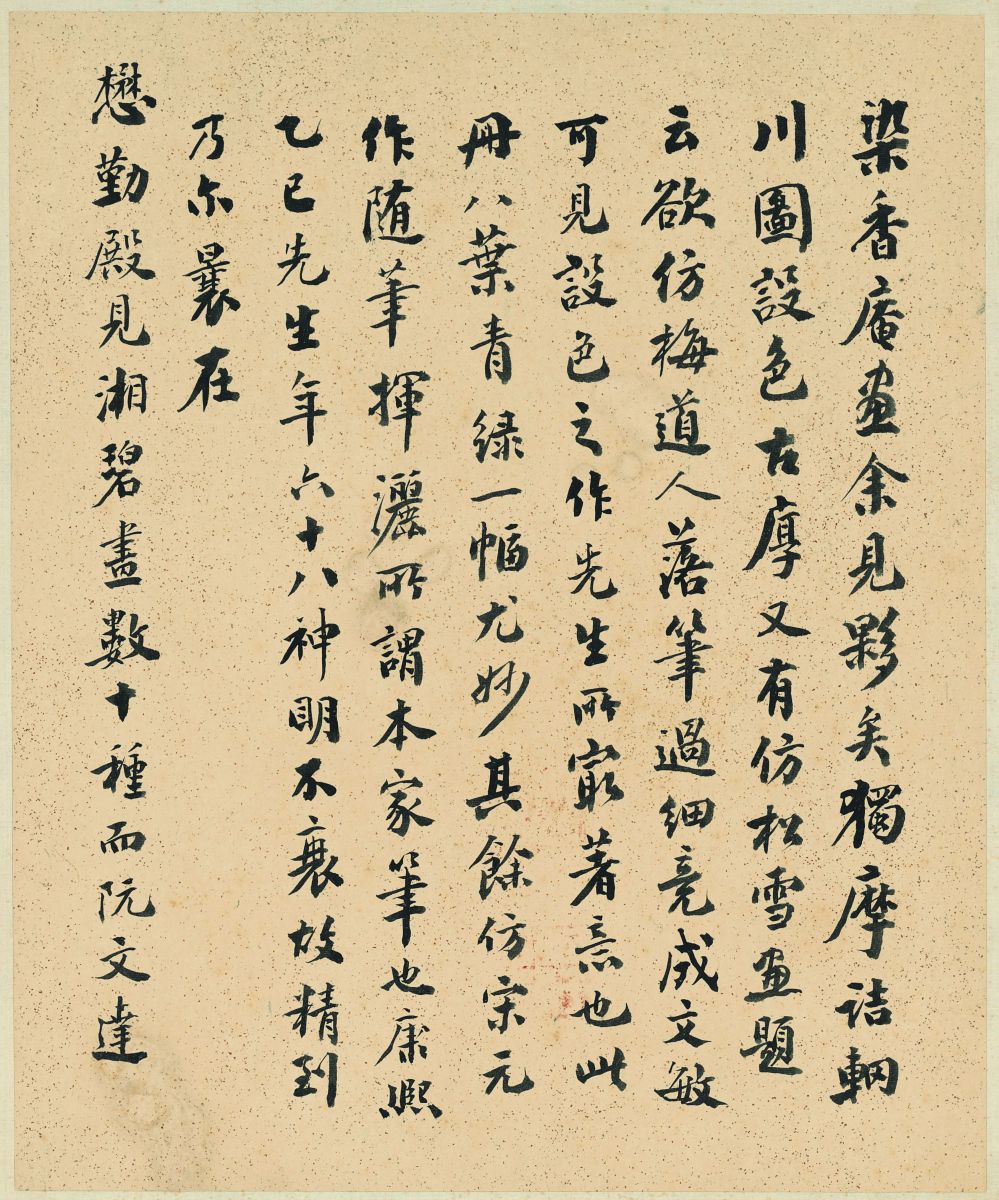 染香庵画余見夥矣獨摩詰輞
川圖設色古厚又有仿松雪画題
云欲仿梅道人落筆過細竟成文敏
可見設色之作先生所最著意也此
冊八葉青綠一幅尤妙其餘仿宋元
作随筆揮灑所謂本家筆也康熙
乙巳先生年六十八神明不衰故精到
乃尔曩在
懋勤殿見湘碧畫數十種而阮文達